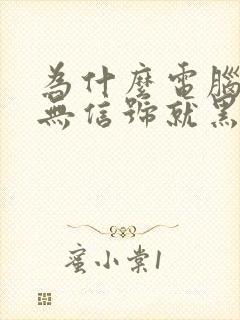 為什麼電腦
無信號就黑
蜜小棠1